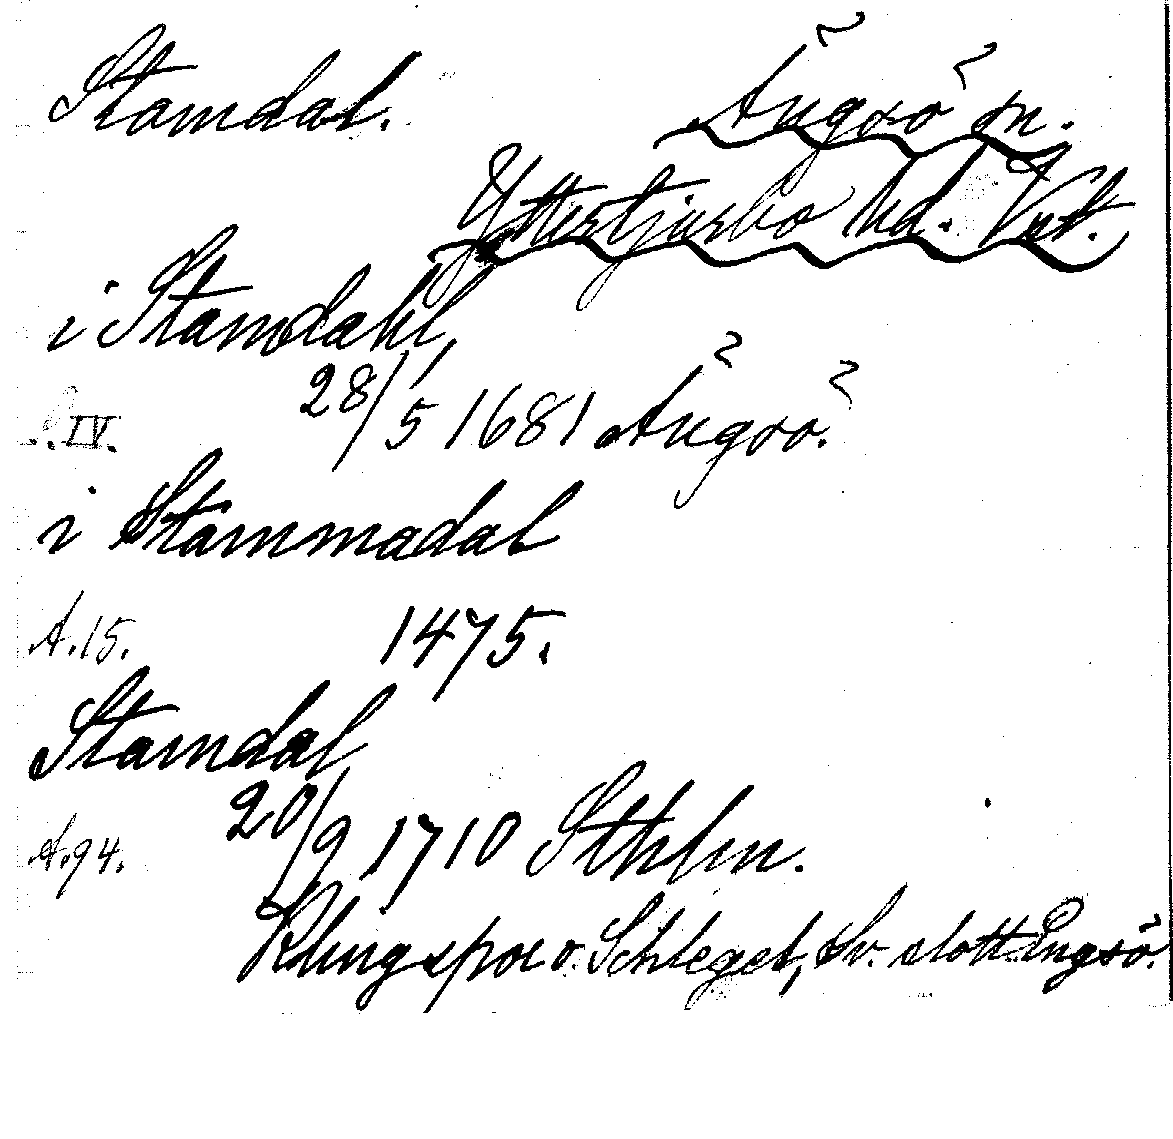 Stamdal. Ängsö sn.
Yttertjurbo hd. Vstm.
i Stamdahl,
IV. 28/5 1681 Ängsö.
i Stammadal
A.15. 1475.
Stamdal
A.94. 20/9 1710 Sthlm.
Klingspor o. Schlegel, Sv. slott Engsö.